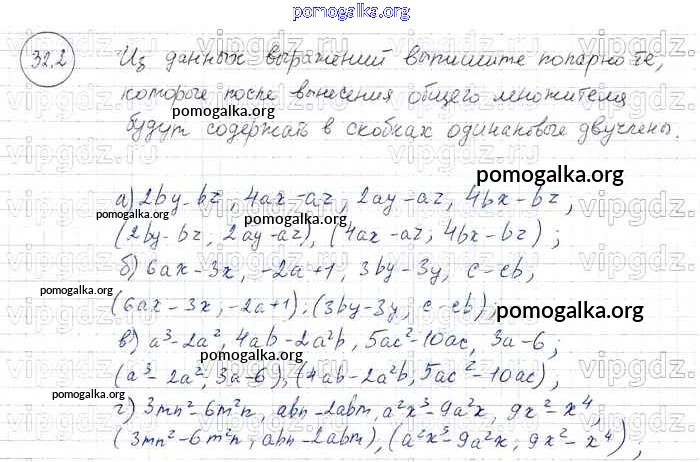 pomogalka.org
32.2 Из данных выражений выпишите попарно те,
которые после вынесения общего множителя
pomogalka.org
будут содержать в скобках одинаковые двучлены.
pomogalka.org
а) 2by-bz, 4ax-az, 2ay-az, 4bx-bz,
pomogalka.org pomogalka.org
(2by-bz; 2ay-az), (4ax-az; 4bx-bz);
б) 6ax-3x, -2a+1, 3by-3y, c-cb,
pomogalka.org
(6ax-3x, -2a+1), (3by-3y, c-cb);
pomogalka.org
в) a³-2a², 4ab-2a²b, 5ac²-10ac, 3a-6;
pomogalka.org
(a³-2a²; 3a-6), (4ab-2a²b, 5ac²-10ac),
pomogalka.org
г) 3mn²-6m²n, abn-2abm, a²x³-9a²x, 9x²-x⁴,
pomogalka.org
(3mn²-6m²n; abn-2abm), (a²x³-9a²x; 9x²-x⁴),